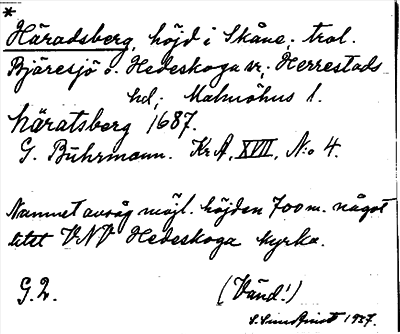 *
Häradsberg, höjd i Skåne, trol.
Bjäresjö o. Hedeskoga sr, Herrestads
hd, Malmöhus l.
häratsberg 1687.
G. Buhrmann. KrA, XVII, No 4.
Namnet avsåg möjl. höjden 700 m. något
litet VNV Hedeskoga kyrka.
G. 2. (Vänd!)
S. Sundqvist 1937.